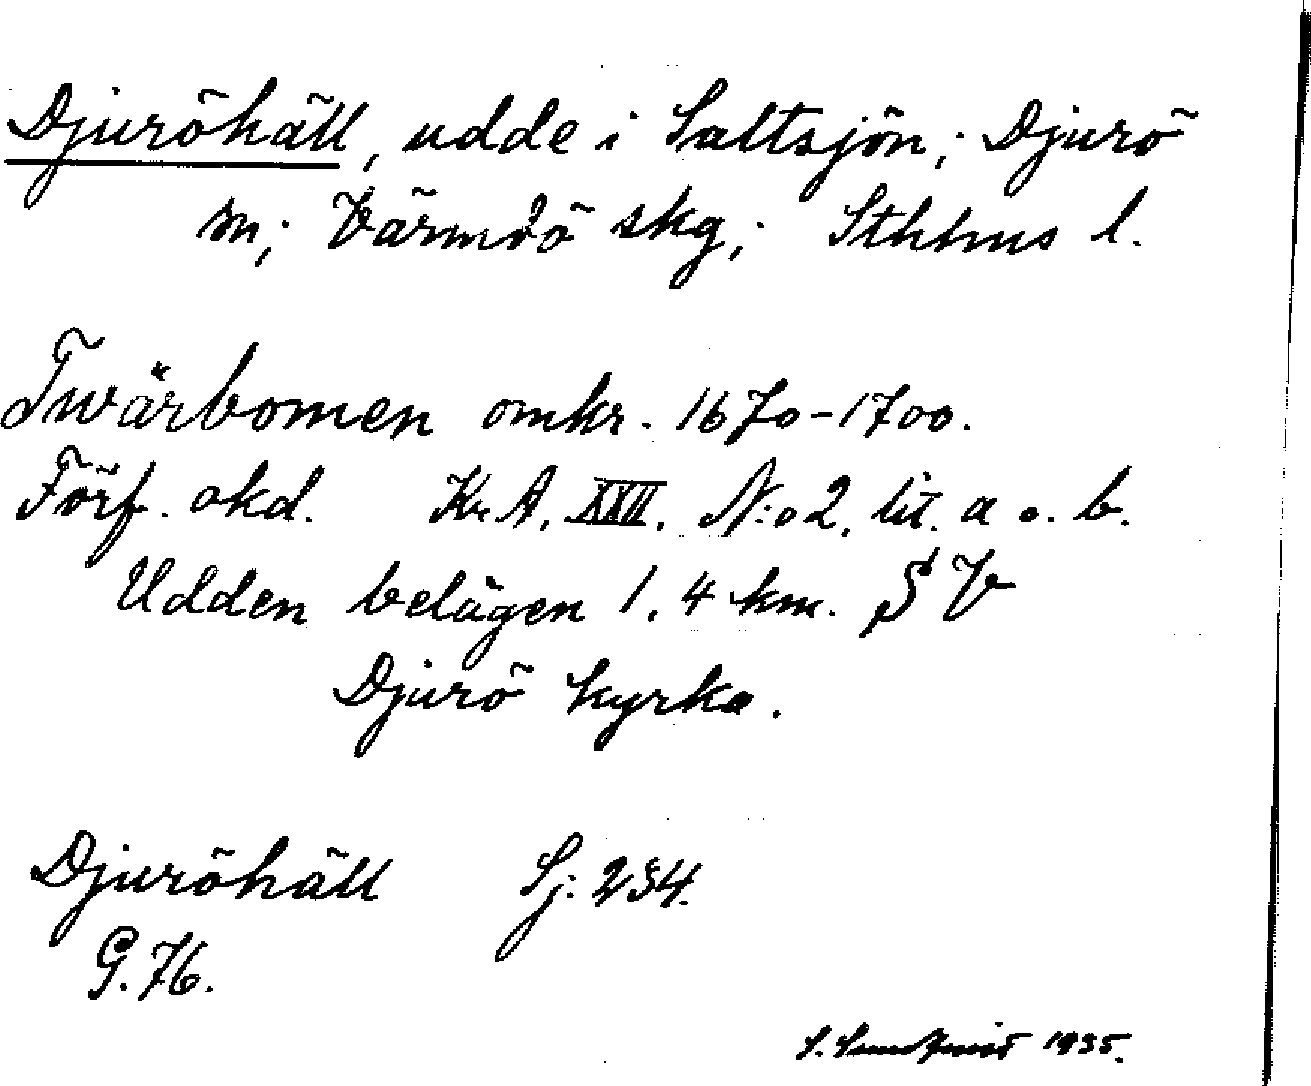 Djuröhäll, udde i Saltsjön; Djurö
sn; Värmdö skg; Sthlms l.
Twärbomen omkr. 1670-1700.
Förf. okd. Kr. A. XXII. N:o 2. lit. a o. b.
Udden belägen 1,4 km. S V
Djurö kyrka.
Djuröhäll Sj: 234.
G. 76.
S. 1935.